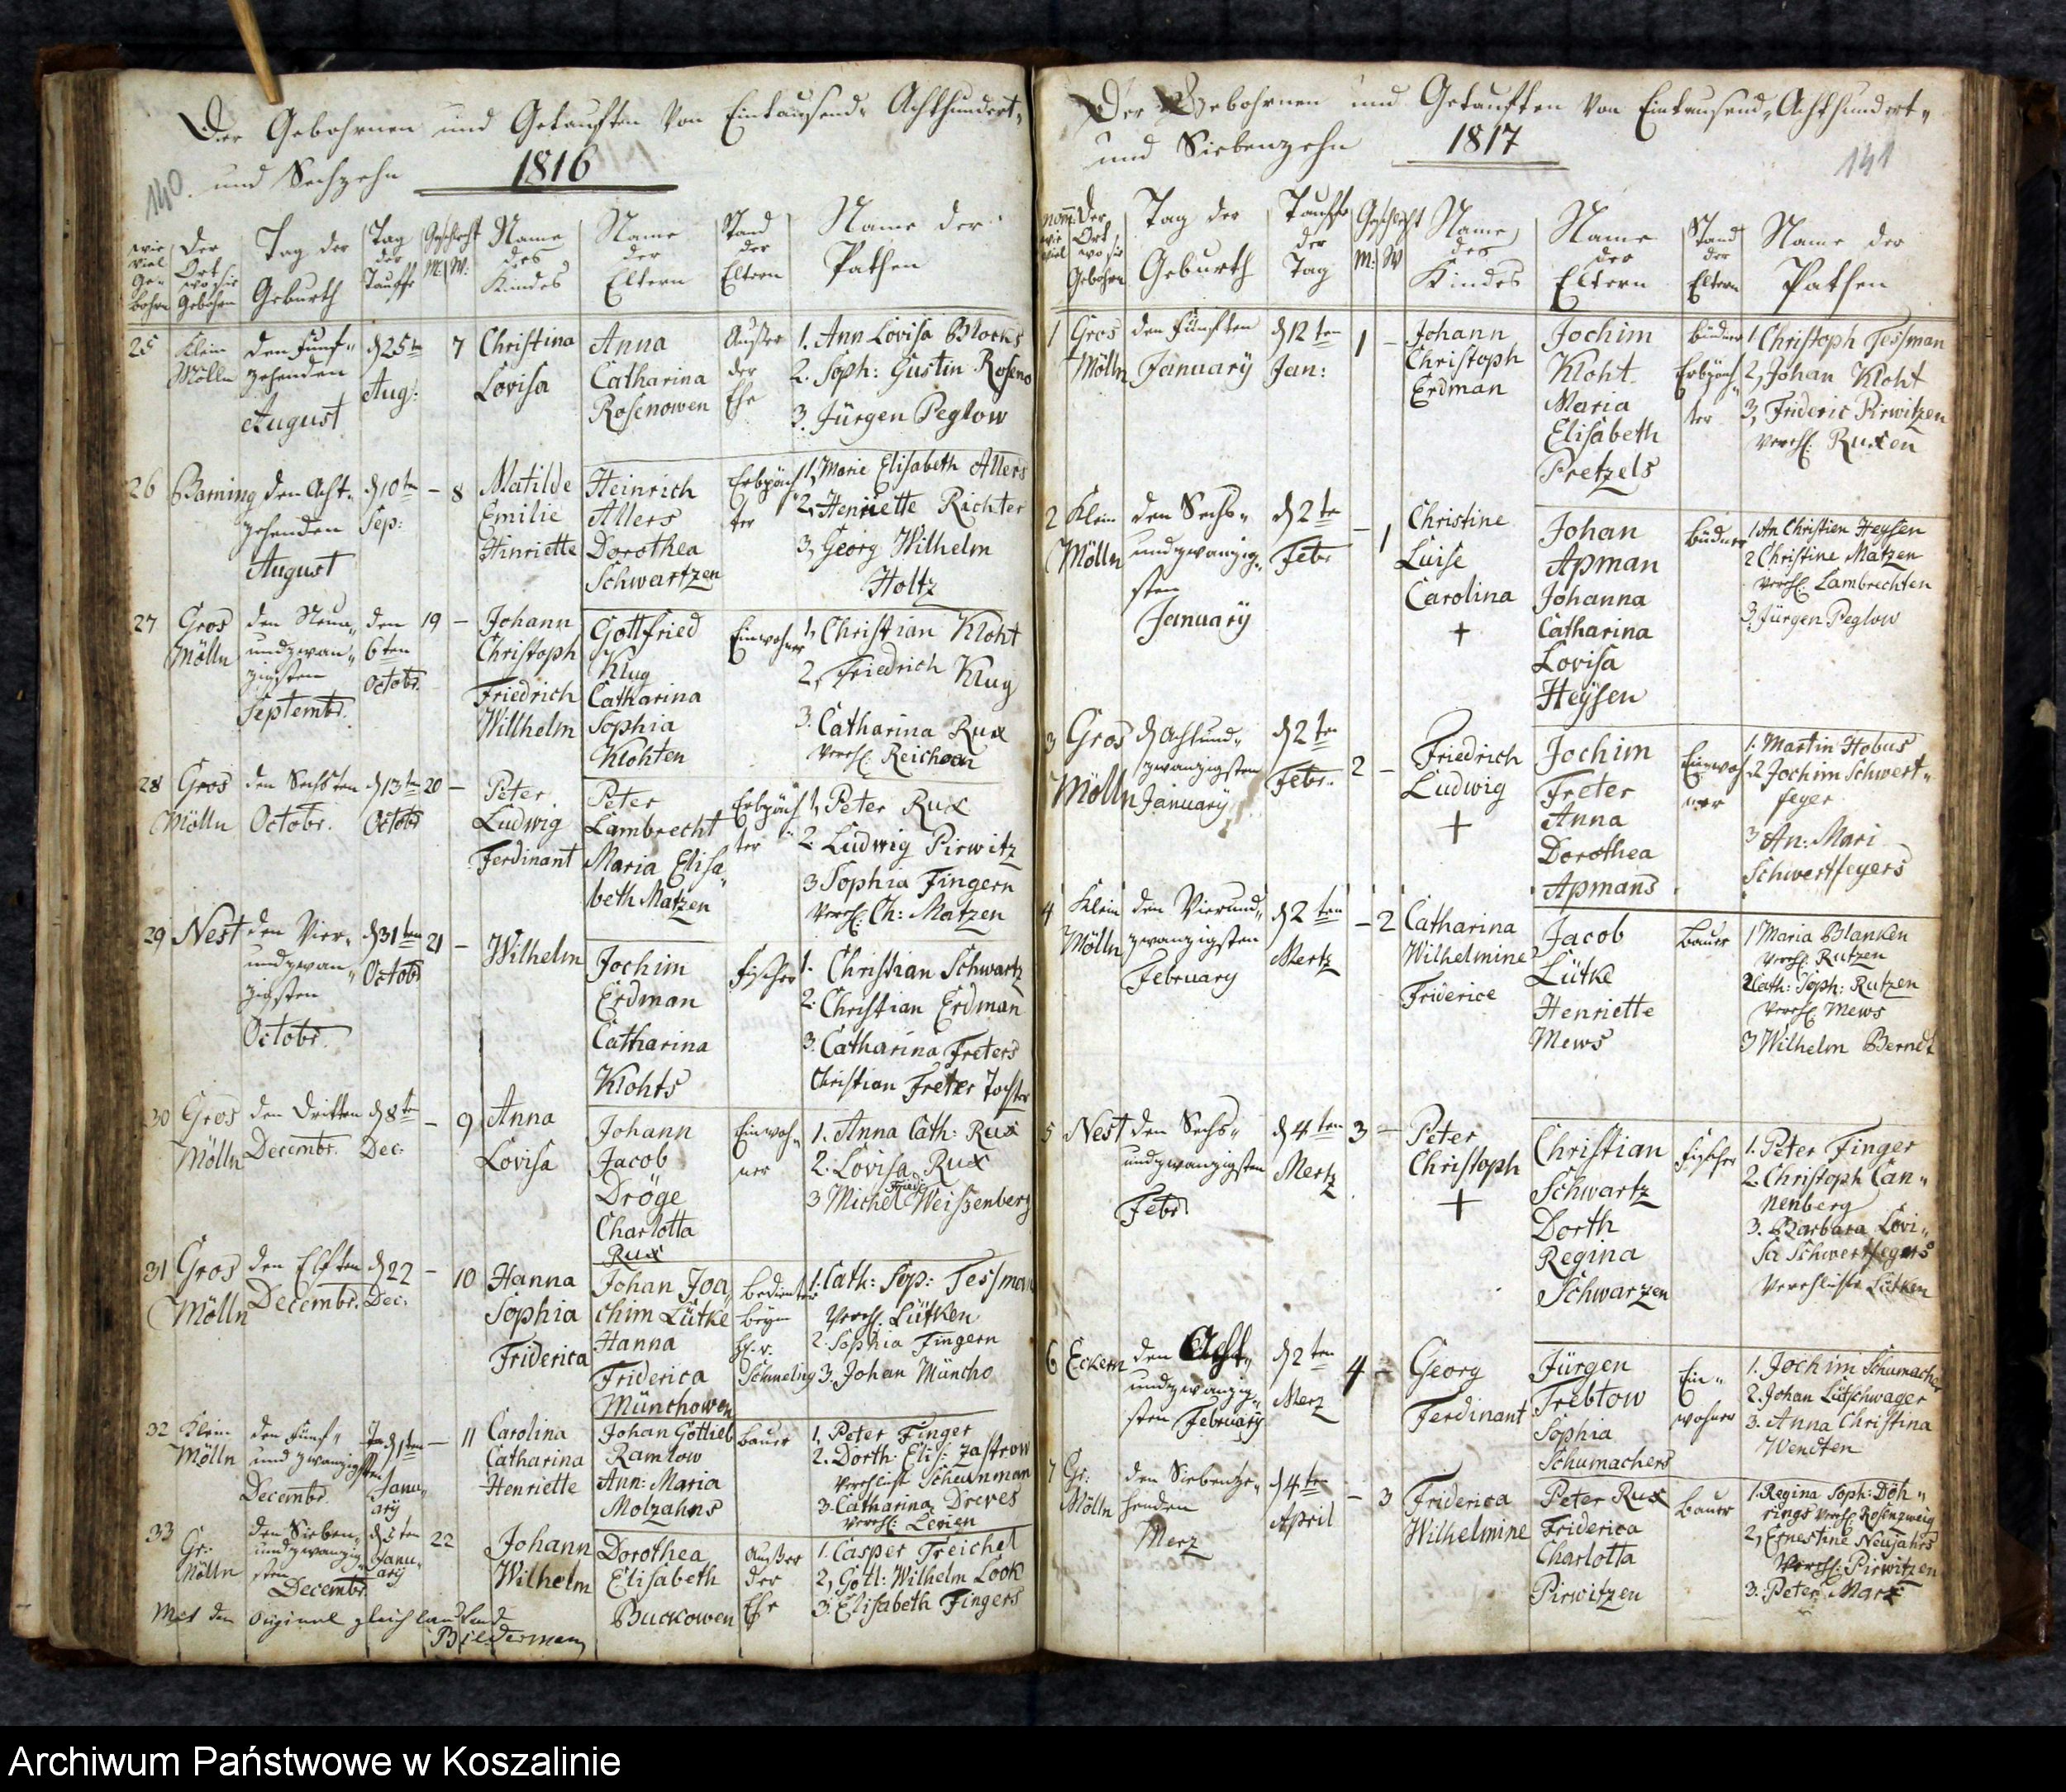 Der Gebohrnen und Getauften Von Eintausend„ Achthundert„
140 und Sechzehn 1816
wie viel Ge-bohrn
Der Ort wo sie Gebohrn
Tag der Geburth
Tag der Tauffe
Geschlecht M: W:
Name des Kindes
Name der Eltern
Stand der Eltern
Name der Pathen
25 Klein Mölln
den Funf„ zehenden August
d 25 ten Aug:
7
Christina Lovisa
Anna Catharina Rosenowen
Außer der Ehe
1. Ann Lovisa Blocks
2. Soph: Gustin Roseno
3. Jürgen Peglow
26 Barning
den Acht„ zehenden August
d 10 ten Sep:
– 8
Matilde Emilie Hinriette
Heinrich Allers
Dorothea Schwartzen
Erbpäch„ ter
1, Marie Elisabeth Allers
2, Henriette Richter
3, Georg Wilhelm Holtz
27 Gros Mölln
den Neun„ undzwan„ zigsten Septembr.
den 6ten Octobr.
19 –
Johann Christoph Friedrich Willhelm
Gottfried Klug
Catharina Sophia Klohten
Einwohner
1, Christian Kloht
2, Friedrich Klug
3. Catharina Rux
Verehl:
28 Gros Mölln
den Sechsten Octobr.
d 13 ten Octobr
20 –
Peter Ludwig Ferdinant
Peter Lambrecht
Maria Elisa„ beth Matzen
Erbpäch„ ter
1, Peter Rux
2. Ludwig Pirwitz
3 Sophia Fingern
Verehl: Ch: Matzen
29 Nest
den Vier„ undzwan„ zigsten Octobr.
d 31 ten Octobr
21 –
Wilhelm
Jochim Erdman
Catharina Klohts
Fischer
1. Christian Schwartz
2. Christian Erdman
3. Catharina Freters
Christian Freter Tochter
30 Gros Mölln
den Dritten Decembr.
d 8 ten Dec:
– 9
Anna Lovisa
Johann Jacob Dröge
Charlotta Rux
Einwoh„ ner
1. Anna Cath: Rux
2. Lovisa Rux
3 Michel Fried: Weißenberg
31 Gros Mölln
den Elften Decembr.
d 22 Dec:
– 10
Hanna Sophia Friderica
Johan Joa„ chim Lütke
Hanna Friderica Münchowen
bedienter beym H. v. Schmeling
1. Cath: Sop: Tessman
Verehl: Lütken
2. Sophia Fingern
3. Johan Müncho
32 Klein Mölln
den Fünf„ und zwanzigsten Decembr.
d 1sten Janu„ ary
– 11
Carolina Catharina Henriette
Johan Gottlieb Ramlow
Ann: Maria Molzahns
Bauer
1. Peter Finger
2. Dorth: Elis: Zastrow
3. Catharina Dreves
Verehl: Levien
33 Gr: Mölln
den Sieben„ undzwanzig„ sten Decembr
Janu„ ary
22
Johann Wilhelm
Dorothea Elisabeth Buckowen
Außer der Ehe
1. Casper Treichel
2, Gotl: Wilhelm Look
3. Elisabeth Fingers
Mit dem Original gleich lautend
Biedermann
Der Gebohrnen und Getauften Von Eintausend„ Achthundert„
und Siebenzehn 1817 141
wie viel
Der Ort wo sie Gebohrn
Tag der Geburth
Tauffe der Tag
Geschlecht M: W
Name des Kindes
Name der Eltern
Stand der Eltern
Name der Pathen
1 Gros Mölln
den Fünften January
d 12 ten Jan:
1 –
Johann Christoph Erdman
Jochim Kloht
Maria Elisabeth Pretzels
Büdner Erbpäch„ ter
1 Christoph Tessman
2, Johan Kloht
3, Frideric Pirwitzen
Verehl: Ruxen
2 Klein Mölln
den Sechs„ undzwanzig„ sten January
d 2 te Febr
– 1
Christine Luise Carolina
+
Johan Apman
Johanna Catharina Lovisa Heysen
Büdner
1 An Christien Heysen
2 Christine Matzen
Verehl: Lambrechten
3. Jürgen Peglow
3 Gros Mölln
d Achtund„ zwanzigsten January
d 2 ten Febr.
2 –
Friedrich Ludwig
+
Jochim Freter
Anna Dorothea Apmans
Einwoh„ ner
1. Martin Hobus
2 Jochim Schwert„ feger
3 An: Mari Schwertfegers
4 Klein Mölln
den Vierund„ zwanzigsten February
d 2 ten Mertz
– 2
Catharina Wilhelmine Friderice
Jacob Lütke
Henriette Mews
Bauer
1 Maria Blanken
Verehl: Rutzen
2 Cath: Soph: Rutzen
Verehl: Mews
3 Wilhelm Berndt
5 Nest
den Sechs„ undzwanzigsten Febr
d 4 ten Mertz
3 –
Peter Christoph
+
Christian Schwartz
Dorth Regina Schwarzen
Fischer
1. Peter Finger
2. Christoph Can„ nenberg
3. Barbara Lovi„ sa Schwertfegers
Verehlichte Lütken
6 Eckern
den Acht„ undzwanzig„ sten February
d 2 ten Merz
4 –
Georg Ferdinant
Jürgen Trebtow
Sophia Schumachers
Ein„ wohner
1. Jochim Schumacher
2. Johan Lütschwager
3. Anna Christina Wendten
7 Gr: Mölln
den Siebenze„ henden Merz
d 4 ten April
– 3
Friderica Wilhelmine
Peter Rux
Friderica Charlotta Pirwitzen
Bauer
1. Regina Soph: Döh„ rings Verehl: Rosenzweig
2, Ernestine Neujahrs
Verehl: Pirwitzen
3. Peter Marx
Archiwum Państwowe w Koszalinie